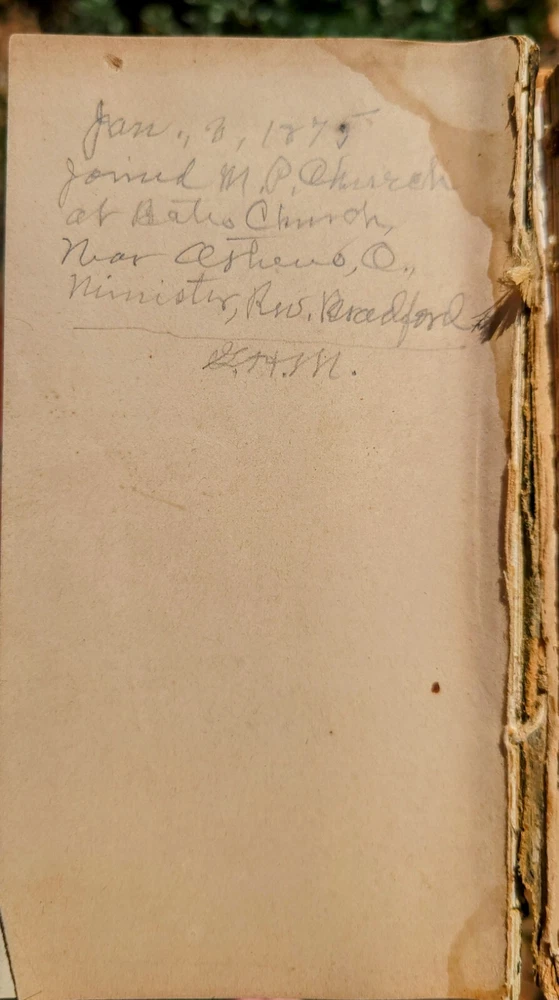 Jan., 3, 1875
Joined M. P. Church
at Bates Church,
Near Athens, O.,
Minister, Rev. Bradford
H.M.